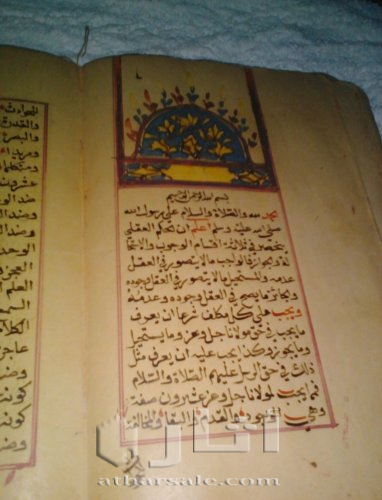 بسم الله الرحمن الرحيم
الحمد لله والصلاة والسلام على رسول الله
صلى الله عليه وسلم اعلم ان الحكم العقلي
ينحصر في ثلاثة اقسام الوجوب والاستحا
لة والجواز فالواجب ما لا يتصور في العقل
عدمه والمستحيل ما لا يتصور في العقل وجوده
والجائز ما يصح في العقل وجوده وعدمه
ويجب على كل مكلف شرعا ان يعرف
ما يجب في حق مولانا جل وعز وما يستحيل
وما يجوز وكذا يجب عليه ان يعرف مثل
ذلك في حق الرسل عليهم الصلاة والسلام
فما يجب لمولانا جل وعز عشرون صفة
وهي الوجود والقدم والبقا والمخالفة
للحوادث
والقدرة
والبصر
ضد الو
وضد ال
الوحد
العجز
العلم
السمع
الكلام
عاجز
كونه
كونه
وضد
آثار
atharsale.com